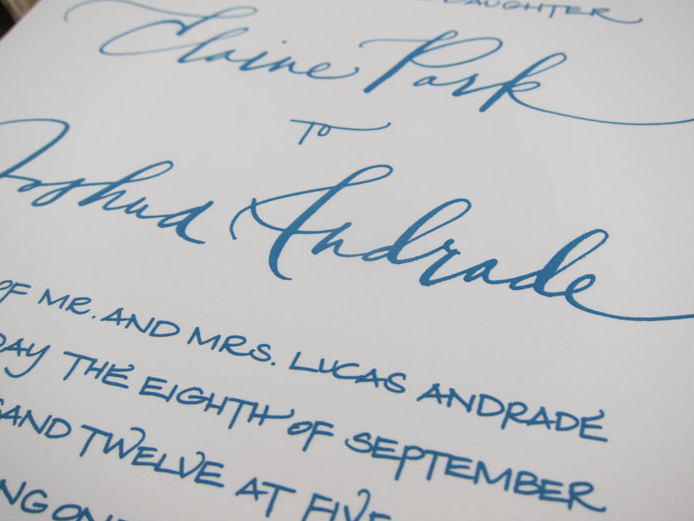 DAUGHTER
Elaine Park
To
Joshua Andrade
OF MR. AND MRS. LUCAS ANDRADE
DAY THE EIGHTH OF SEPTEMBER
SAND TWELVE AT FIVE
NG ON